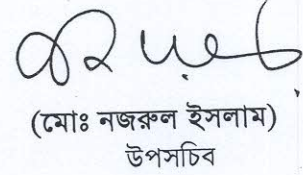 (মোঃ নজরুল ইসলাম)
উপসচিব